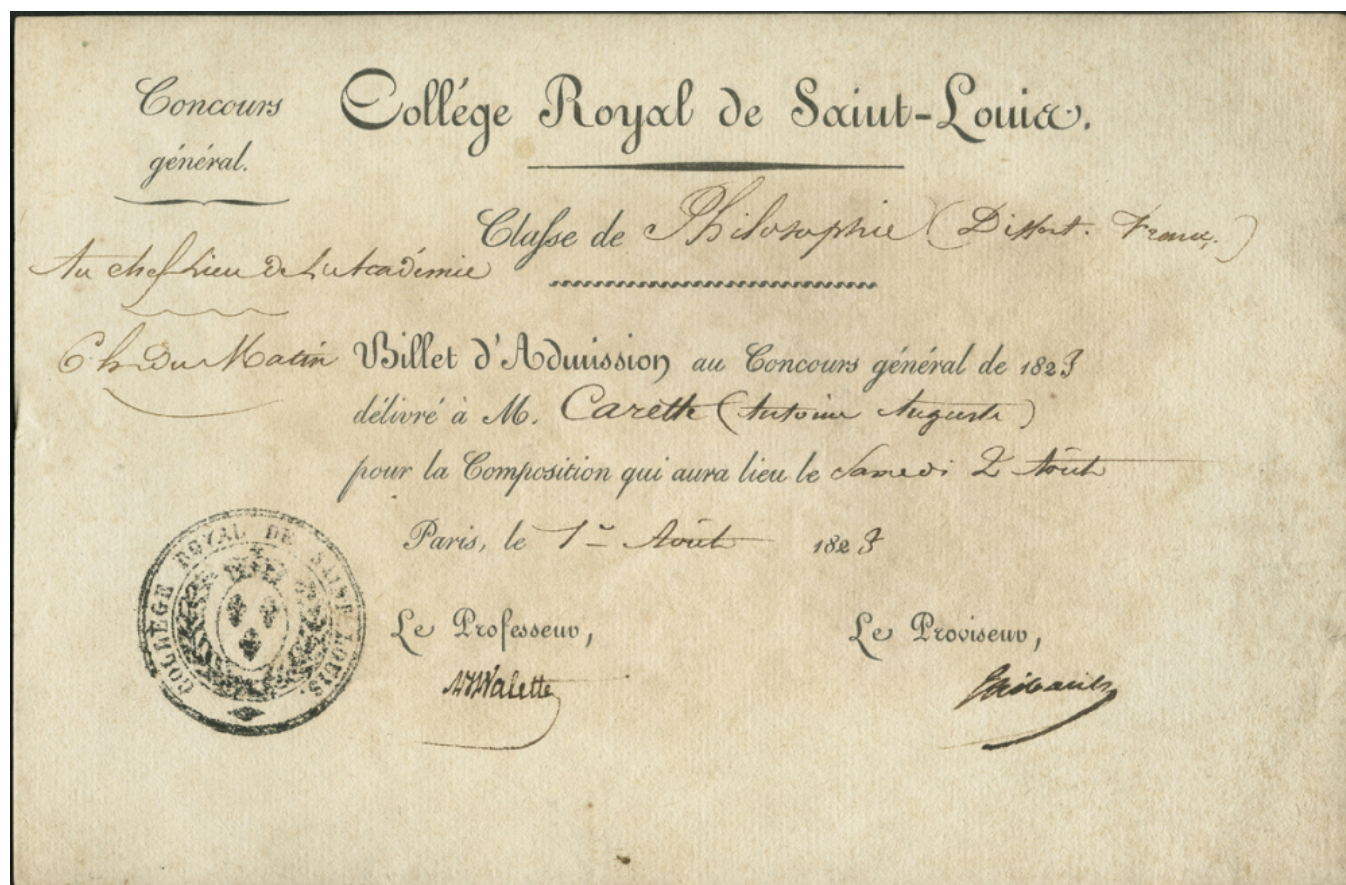 Concours
général.
Collége Royal de Saint-Louis.
Classe de Philosophie (Dissert. Franç.)
Au chef lieu de L'Académie
6 h. Du Matin
Billet d'Admission au Concours général de 1823
délivré à M. Carette (Antoine Auguste)
pour la Composition qui aura lieu le Samedi 2 Août
Paris, le 1er Août 1823
COLLÈGE ROYAL DE SAINT LOUIS.
Le Professeur,
Valette
Le Proviseur,